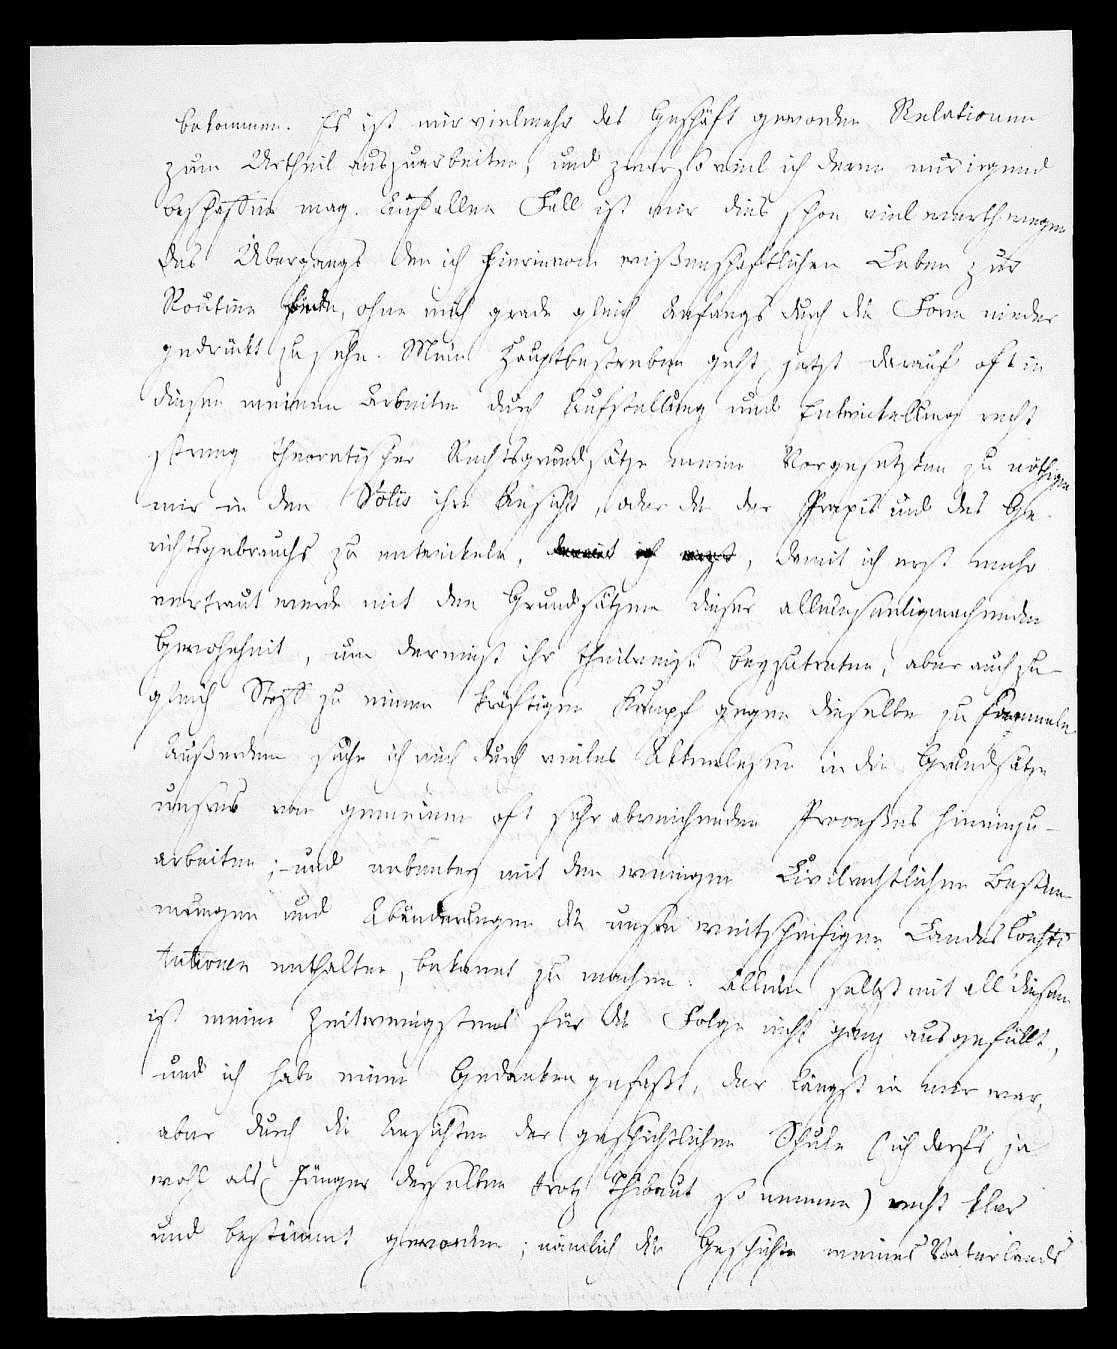 bekommen. Es ist mir vielmehr das Geschäft geworden Relationen
zum Urtheil auszuarbeiten, und zwar so viel ich deren nur irgend
beschaffen mag. Auf allen Fall ist mir dies schon viel werth wegen
des Übergangs den ich hierin vom wißenschaftlichen Leben zur
Routine finde, ohne mich grade gleich Anfangs durch die Form nieder
gedrückt zu sehn. Mein Hauptbestreben geht jetzt darauf oft in
diesen meinen Arbeiten durch Aufstellung und Entwickelung recht
streng theoretischer Rechtsgrundsätze meine Vorgesetzten zu nöthigen
mir in den Votis ihre Ansicht, oder die der Praxis und des Ge-
richtsgebrauchs zu entwickeln, damit ich erst, damit ich erst mehr
vertraut werde mit den Grundsätzen dieser alleinseeligmachenden
Gewohnheit, um dereinst ihr theilweise beyzutreten, aber auch zu-
gleich Stoff zu einem kräftigen Kampf gegen dieselbe zu sammeln.
Außerdem suche ich mich durch vieles Aktenlesen in die Grundsätze
unsres vom gemeinen oft sehr abweichenden Proceßes hineinzu-
arbeiten; und nebenbey mit den wenigen Civilrechtlichen Bestim-
mungen und Abänderungen die unsre weitschweifigen Landes Consti
tutionen enthalten, bekannt zu machen. Allein selbst mit all diesem
ist meine Zeit wenigstens für die Folge nicht ganz ausgefüllt,
und ich habe einen Gedanken gefaßt, der längst in mir war,
aber durch die Ansichten der geschichtlichen Schule (ich darf's ja
wohl als Jünger derselben trotz Thibaut so nennen) recht klar
und bestimmt geworden; nämlich die Geschichte meines Vaterlands